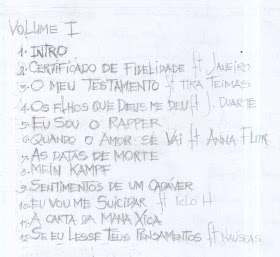 VOLUME I
1. INTRO
2. CERTIFICADO DE FIDELIDADE ft JANEIRO
3. O MEU TESTAMENTO ft TIRA TEIMAS
4. OS FILHOS QUE DEUS ME DEU ft J. DUARTE
5. EU SOU O RAPPER
6. QUANDO O AMOR SE VAI ft ANNA FLOR
7. AS DATAS DE MORTE
8. MEIN KAMPF
9. SENTIMENTOS DE UM CADÁVER
10. EU VOU ME SUICIDAR ft
11. A CARTA DA MANA XICA
12. SE EU LESSE TEUS PENSAMENTOS ft NAUSEAS